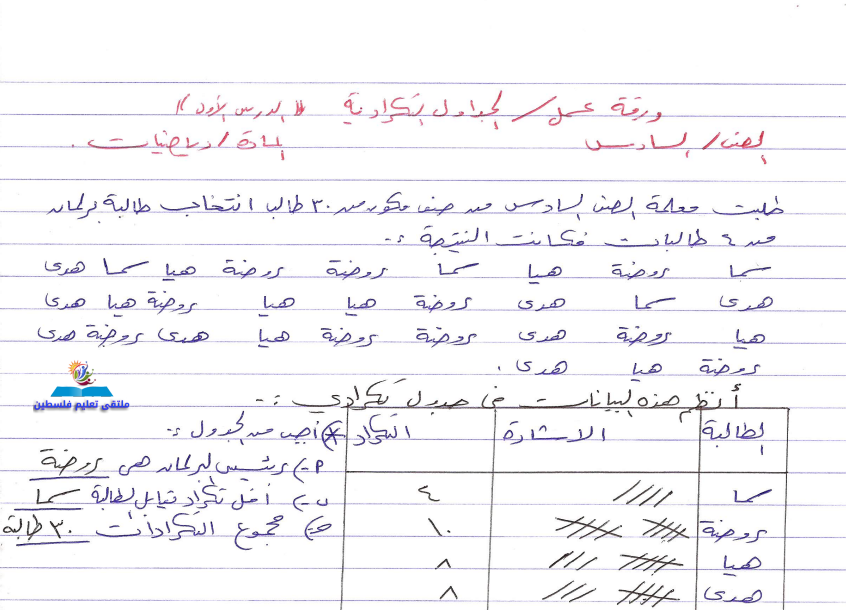 ورقة عمل / الجداول التكرارية « الدرس الأول »
الصف / السادس
المادة / رياضيات .
طلبت معلمة الصف السادس من صف مكون من ٣٠ طالبا انتخاب طالبة برلمان
من ٤ طالبات فكانت النتيجة :-
سما روضة هيا سما روضة روضة هيا سما هدى
هدى سما هدى روضة هيا هيا روضة هيا هدى
هيا روضة هدى روضة روضة هيا هدى روضة هدى
روضة هيا هدى .
أنظم هذه البيانات في جدول تكراري :-
الطالبة الاشارة التكرار
سما //// ٤
روضة ١٠
هيا ٨
هدى ٨
* أجب من الجدول :-
٢-) رئيس البرلمان هي روضة
ب-) أقل تكرار يقابل الطالبة سما
ج-) مجموع التكرارات ٣٠ طالبة
ملتقى تعليم فلسطين